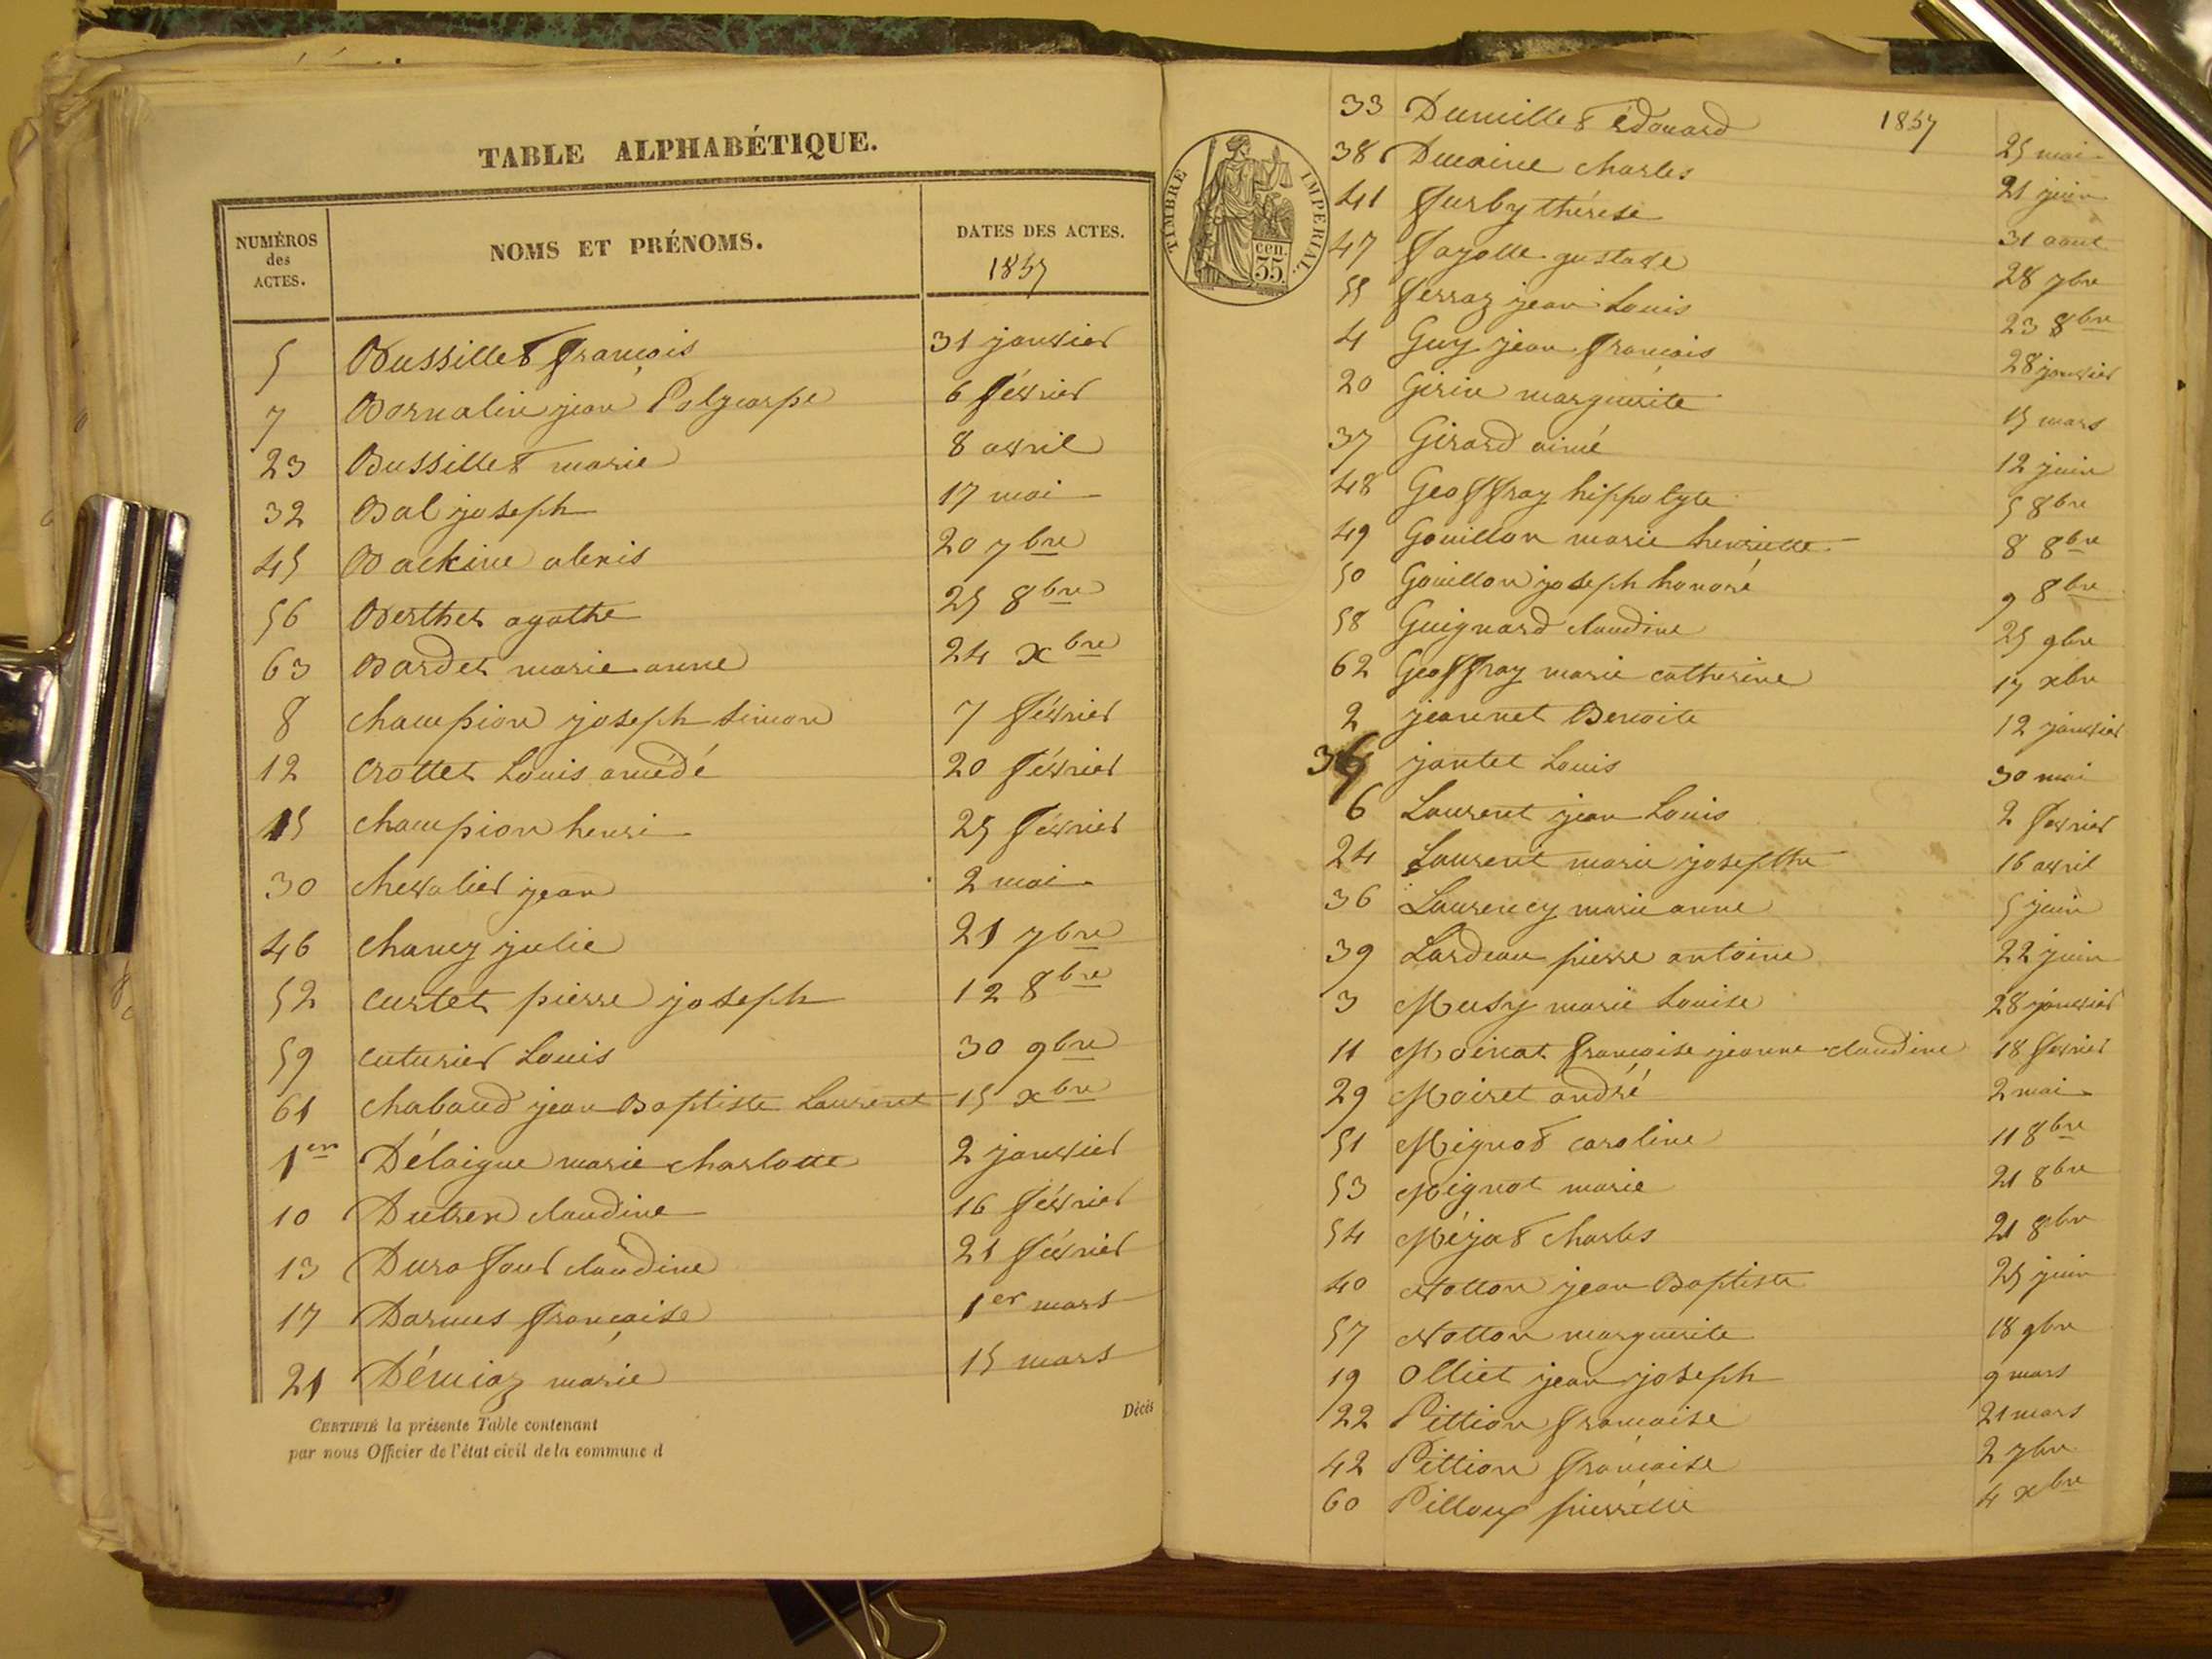 TABLE ALPHABÉTIQUE.
NUMÉROS des ACTES. NOMS ET PRÉNOMS. DATES DES ACTES.
1857
5 Bussillet françois 31 janvier
7 Bornalin jean Polycarpe 6 février
23 Bussillet marie 8 avril
32 Bal joseph 17 mai
45 Backine alexis 20 7bre
56 Berthet agathe 25 8bre
63 Bardet marie anne 24 xbre
8 champion joseph simon 7 février
12 crottet Louis amédé 20 février
15 champion henri 25 février
30 chevalier jean 2 mai
46 chaney julie 21 7bre
52 curtet pierre joseph 12 8bre
59 cuturier Louis 30 9bre
61 chabaud jean Baptiste Laurent 15 xbre
1er Délaigue marie charlotte 2 janvier
10 Dutren claudine 16 février
13 Durafour claudine 21 février
17 Darmes françoise 1er mars
21 Démiaz marie 15 mars
CERTIFIÉ la présente Table contenant
par nous Officier de l'état civil de la commune d
Décès
TIMBRE IMPERIAL.
35 cen.
1857
33 Dumillet édouard 25 mai
38 Dumaine charles 21 juin
41 furby thérèse 31 aout
47 fayolle gustave 28 7bre
55 ferraz jean Louis 23 8bre
4 Guy jean françois 28 janvier
20 Girin marguerite 15 mars
37 Girard aimé 12 juin
48 Geoffray hippolyte 5 8bre
49 Gouillon marie henriette 8 8bre
50 Gouillon joseph honoré 9 8bre
58 Guignard claudine 25 9bre
62 Geoffray marie catherine 17 xbre
2 jeannet Benoite 12 janvier
jantet Louis 30 mai
6 Laurent jean Louis 2 fevrier
24 Laurent marie josephte 16 avril
36 Laurency marie anne 5 juin
39 Lardeau pierre antoine 22 juin
3 Musy marie Louise 28 janvier
11 Moirat françoise jeanne claudine 18 fevrier
29 Moiret andré 2 mai
51 Mignot caroline 11 8bre
53 Mignot marie 21 8bre
54 Méjat charles 21 8bre
40 Notton jean Baptiste 25 juin
57 Notton marguerite 18 9bre
19 Olliet jean joseph 9 mars
22 Pittion françoise 21 mars
42 Pittion françoise 2 7bre
60 Pilloux pierrette 4 xbre